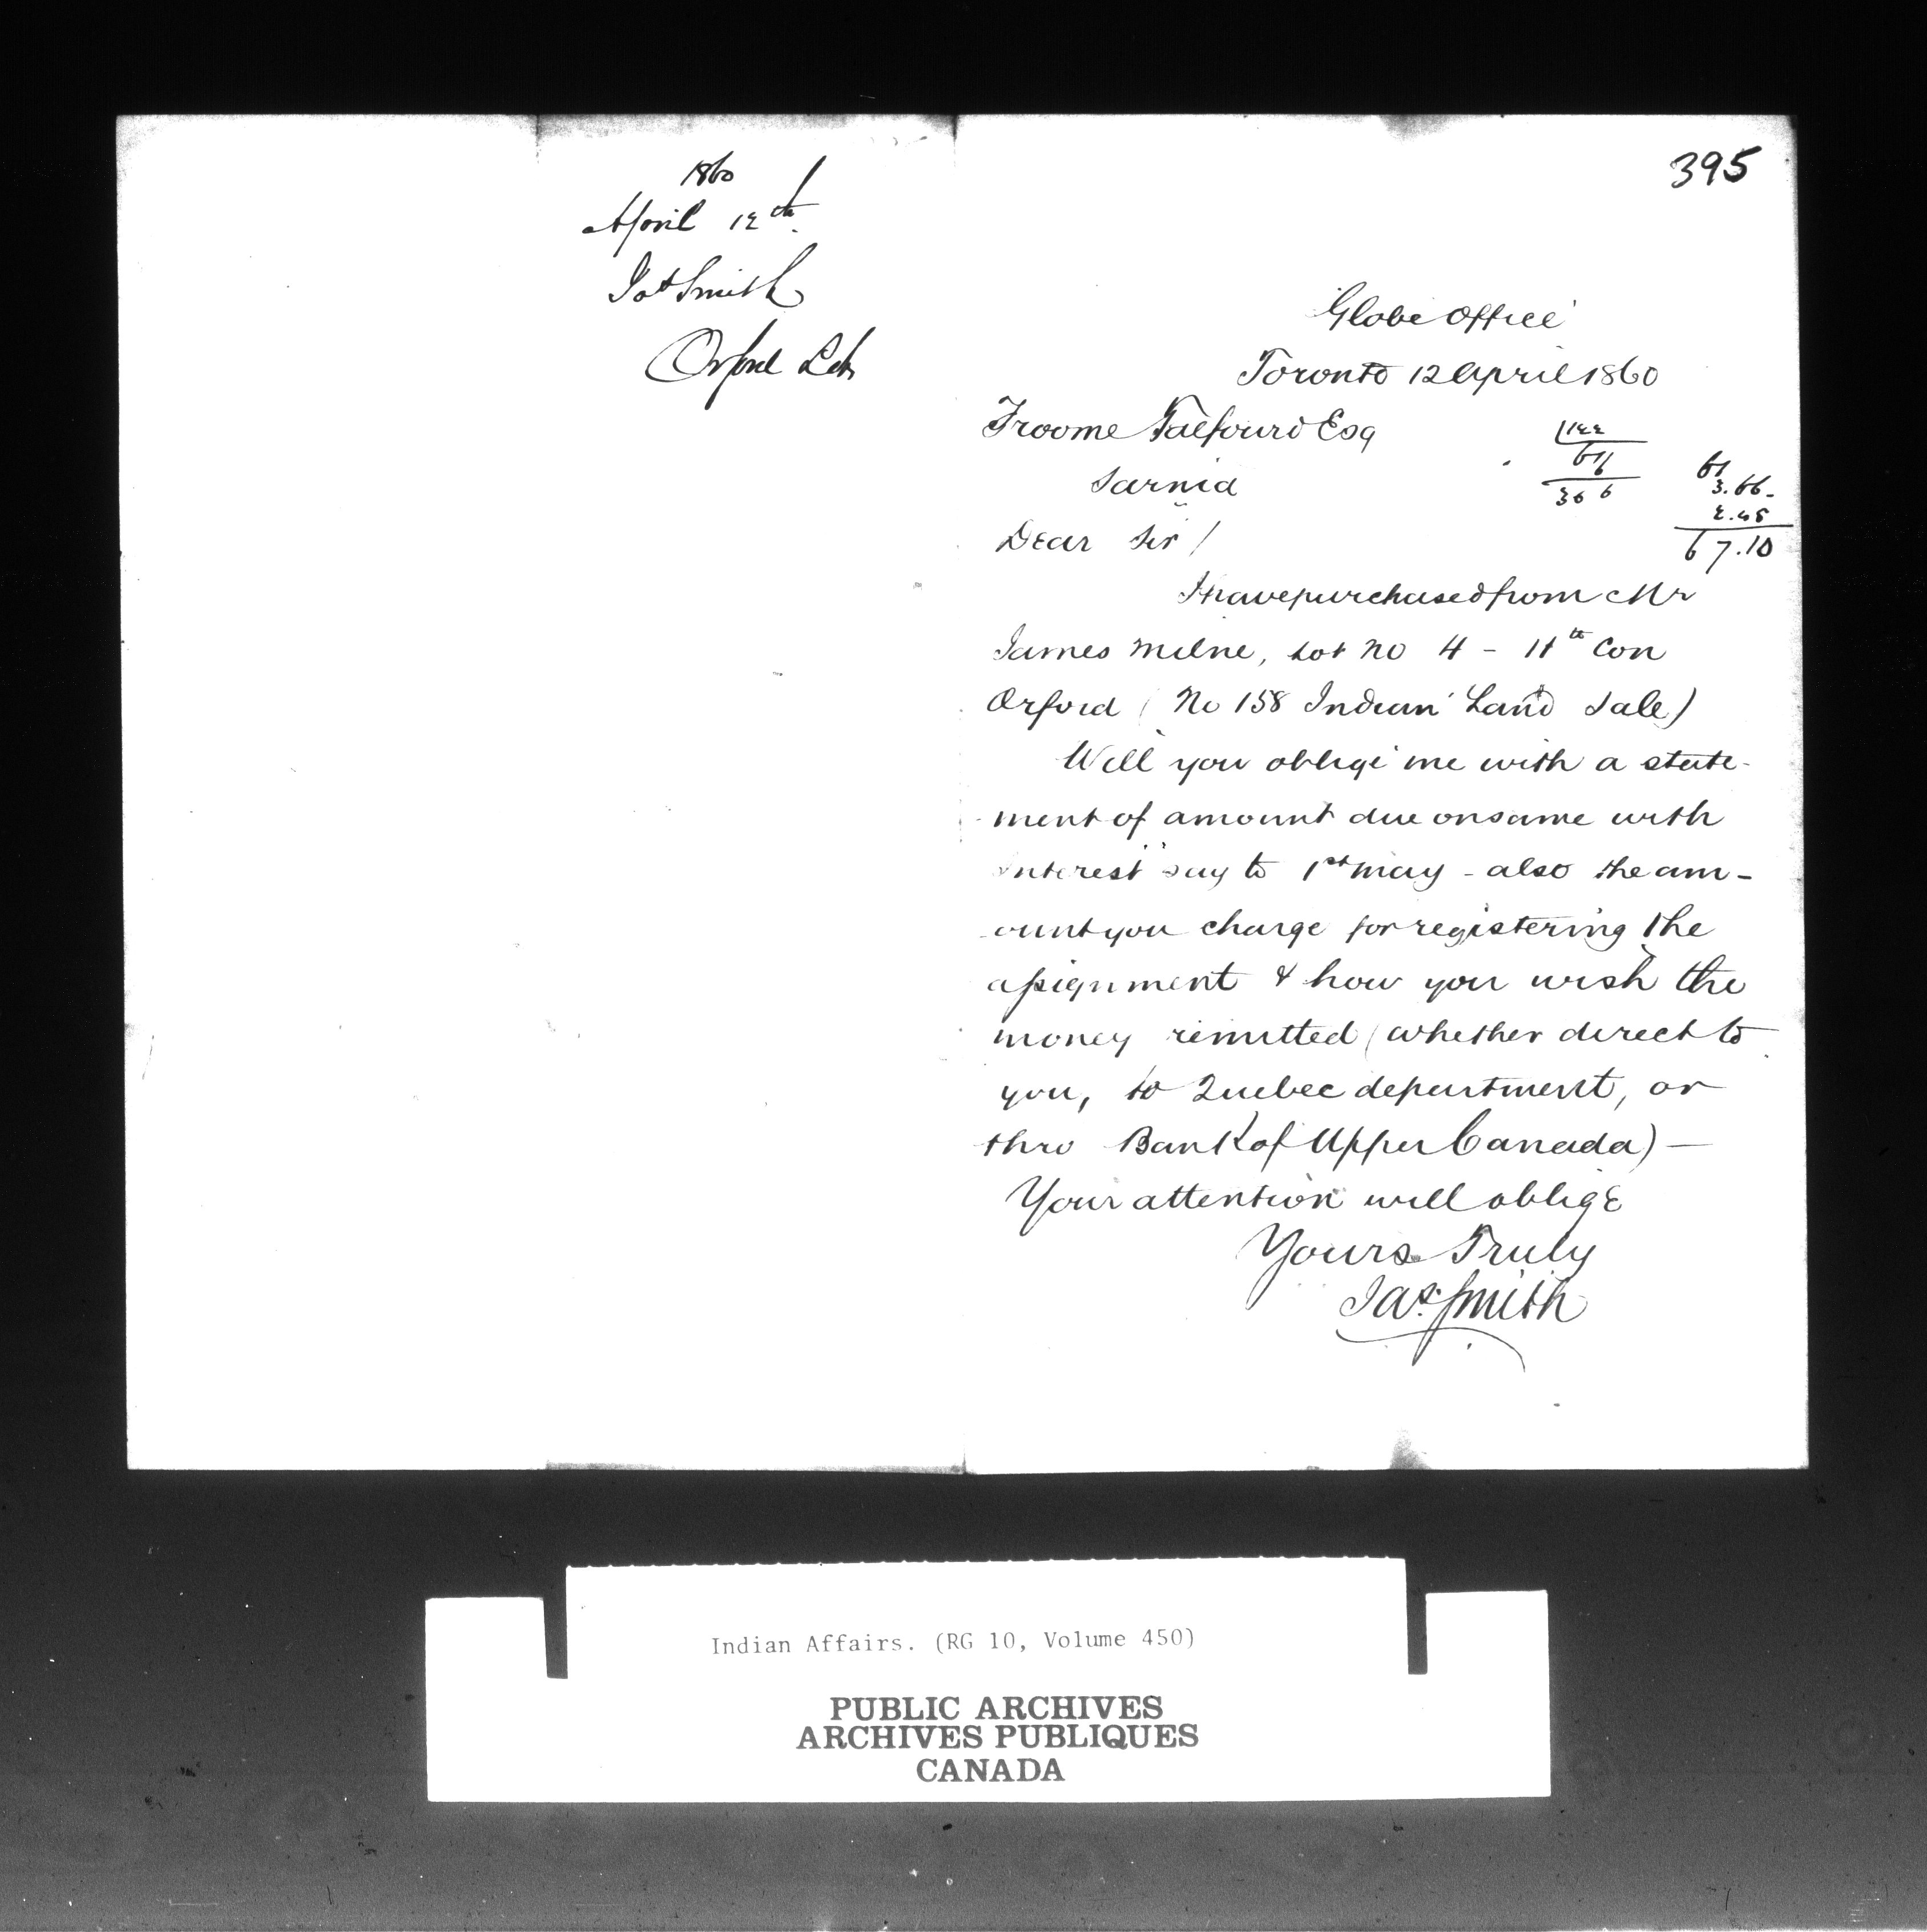 1860
April 12th.
Jas Smith
Orford Lots
395
Globe Office
Toronto 12 April 1860
Froome Talfourd Esq
Sarnia
Dear Sir /
122
61
6
366
61
3.66-
2.45
67.10
I have purchased from Mr
James Milne, Lot No 4 - 11th Con
Orford (No 158 Indian Land Sale)
Will you oblige me with a state-
ment of amount due on same with
interest say to 1st May - also the am-
ount you charge for registering the
assignment & how you wish the
money remitted (whether direct to
you, to Quebec department, or
thro Bank of Upper Canada) —
Your attention will oblige
Yours Truly
Jas. Smith
Indian Affairs. (RG 10, Volume 450)
PUBLIC ARCHIVES
ARCHIVES PUBLIQUES
CANADA